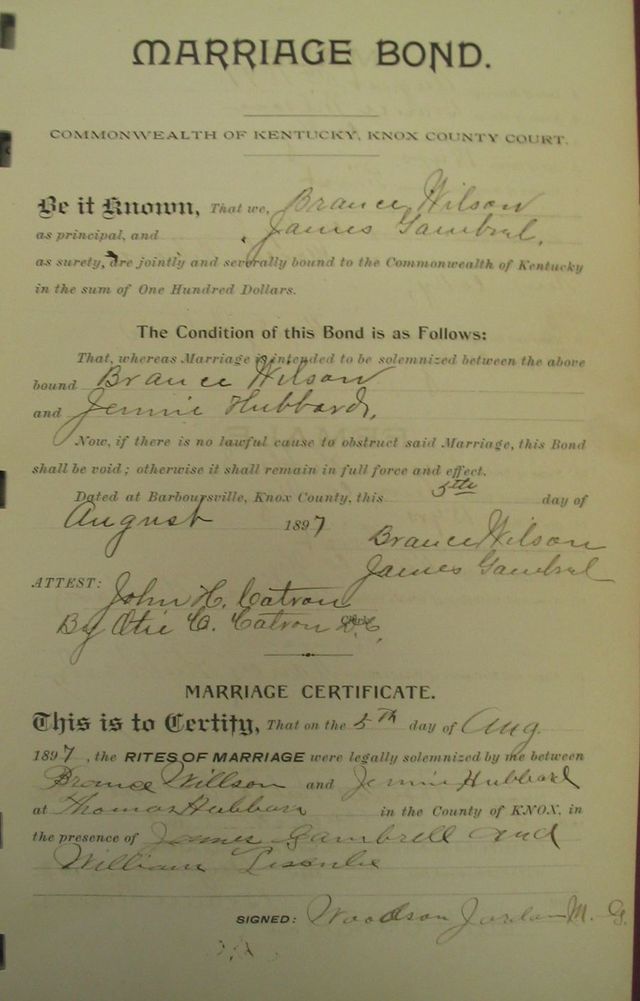 MARRIAGE BOND.
COMMONWEALTH OF KENTUCKY, KNOX COUNTY COURT.
Be it Known, That we, Brance Wilson
as principal, and James Gambrel,
as surety, are jointly and severally bound to the Commonwealth of Kentucky
in the sum of One Hundred Dollars.
The Condition of this Bond is as Follows:
That, whereas Marriage is intended to be solemnized between the above
bound Brance Wilson
and Jennie Hubbard,
Now, if there is no lawful cause to obstruct said Marriage, this Bond
shall be void; otherwise it shall remain in full force and effect.
Dated at Barboursville, Knox County, this 5th day of
August 1897
Brance Wilson
James Gambrel
ATTEST:
John H. Catron
By Otie C. Catron D.C.
MARRIAGE CERTIFICATE.
This is to Certify, That on the 5th day of Aug
1897, the RITES OF MARRIAGE were legally solemnized by me between
Brance Willson and Jennie Hubbard
at Thomas Hubbard in the County of KNOX, in
the presence of James Gambrell and
William
SIGNED: Woodson Jordan M. G.